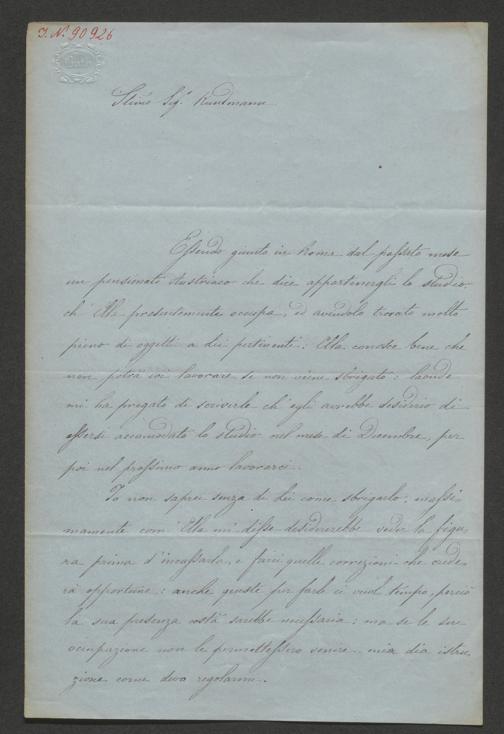 I. N. 90926
Stimo Sig.r Kundmann
Essendo giunto in Roma dal passato mese
un pensionato Austriaco che dice appartenergli lo studio,
ch' Ella presentemente occupa, ed avendolo trovato molto
pieno di oggetti a Lei pertinenti: Ella conosce bene che
non potrà ivi lavorare se non viene sbrigato: laonde
mi ha pregato di scriverle ch' egli avrebbe desiderio di
essersi accomodato lo studio nel mese di Decembre, per
poi nel prossimo anno lavorarci.
Io non saprei senza di Lei come sbrigarlo, massi-
mamente com' Ella mi disse desidererebbe veder la figu-
ra prima d'incassarla, e farci quelle correzioni che crede-
rà opportune: anche queste per farle ci vuol tempo, perciò
la sua presenza costà sarebbe necessaria: ma se le sue
occupazione non le permettessero venire mia dia istru-
zione come devo regolarmi.